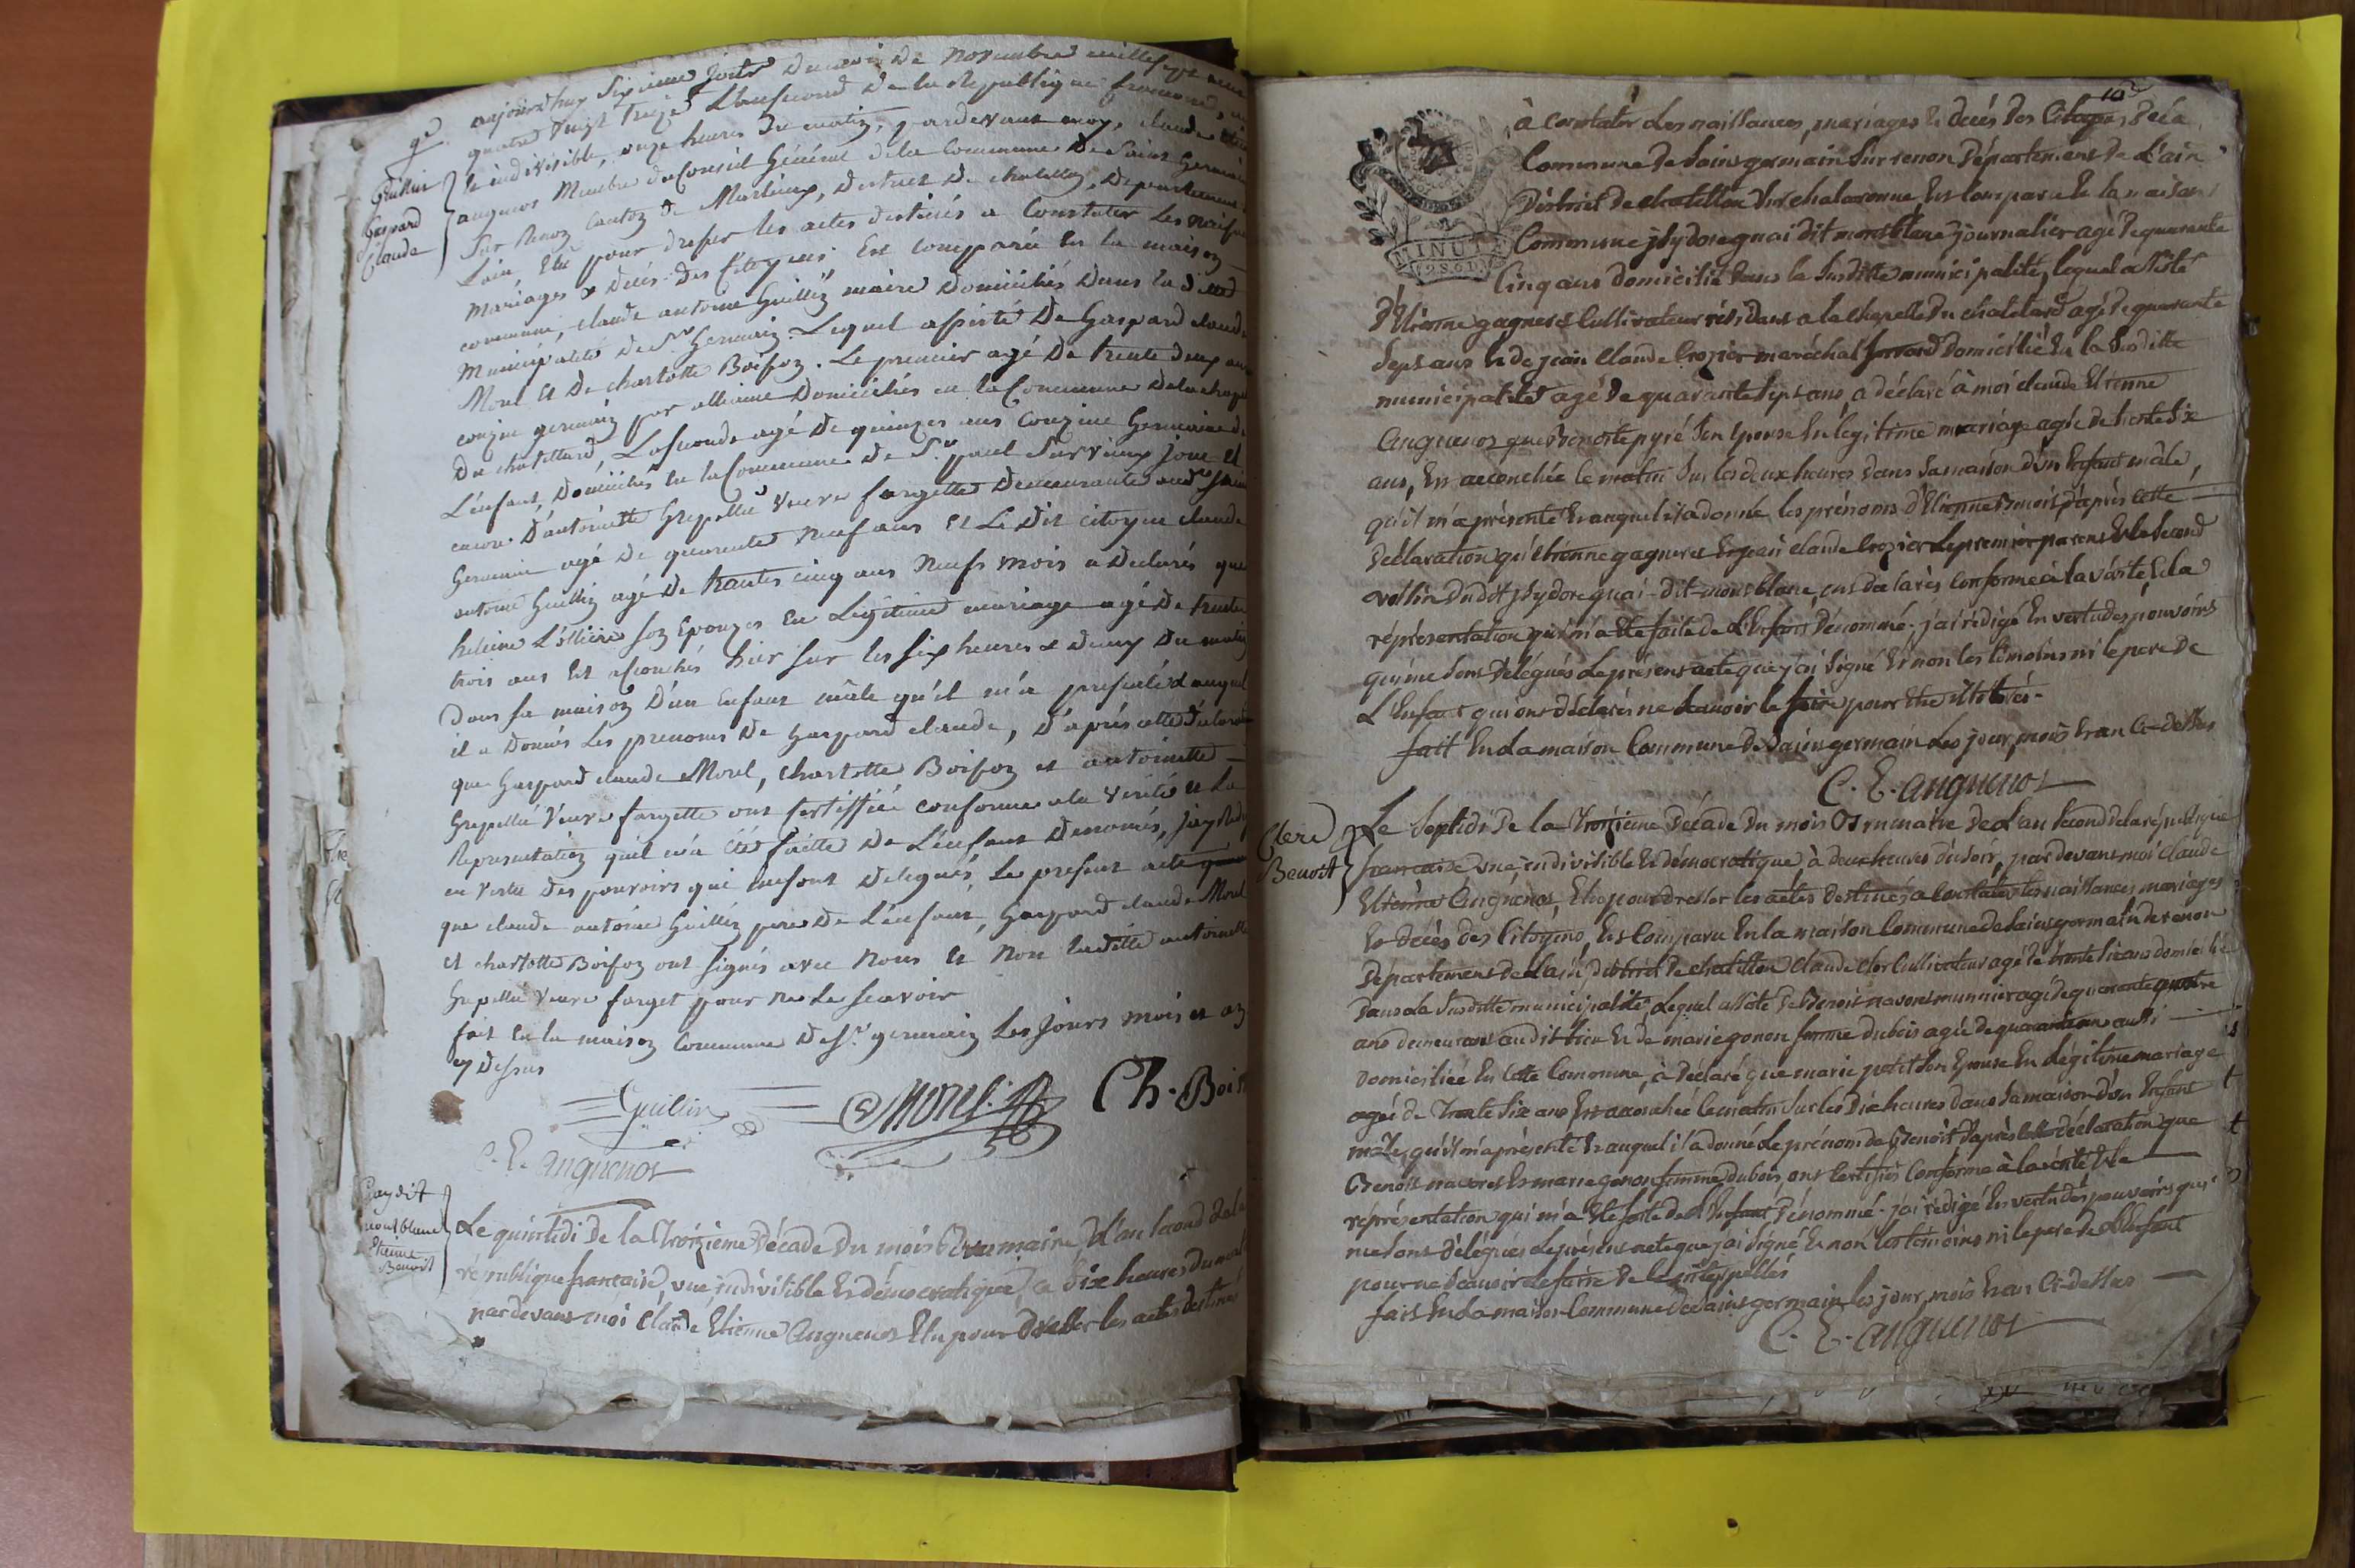 aujourdhuy sixieme jour du mois de novembre mille sept cent
quatre vingt treize L'an second de la republique francaise, une
& indivisible, onze heures du matin, pardevant moy, claude
anguenos Membre du Conseil Général de la Commune De Saint Germain
Sur Renoz Canton de Marlieux, District De chatillon, Departement
L'ain Elu pour dresser les actes destinés a Constater Les naissances
Mariages & Décès Des Citoyens Est comparu En la maison
commune, claude antoine Guillin maire Domiciliés Dans la ditte
Municipalité De St Germain. Lequel assisté De Gaspard claude
Morel Et De charlotte Boisson. Le premier agé De trente deux ans
couzin germain par alliance Domiciliés en la Commune De la chapelle
Du chatellard, La seconde agé De quinzes ans Couzine Germaine de
L'enfant, Domiciliés En la Commune De St paul
encore D'antoinette Grepellié Veuve fargette Demeurante aud. Saint
Germain agé De quarante Neuf ans Et Le Dit citoyen claude
antoine Guillin agé De trentes cinq ans Neufs mois a Déclarés que
son Epouzes En Legitime mariage agé De trente
trois ans Est acouchés hier sur les six heures & demy Du matin
Dans sa maison D'un Enfant mâle qu'il m'a presenté & auquel
il a Donnés Les prenoms De Gaspard claude, D'après cette Déclaration
que Gaspard claude Morel, charlotte Boisson et antoinette
Grepellié Veuve fargette ont sertiffiée conforme a la Vérité et La
Représentation quil m'a été faitte De L'enfant Denomés, j'ay Redigé
en Vertu Des pouvoirs qui me sont Delegués, Le present acte
que claude antoine Guillin pere De L'enfant, Gaspard claude Morel
et charlotte Boisson ont signés avec Nous Et Non ladite antoinette
Grepellié Veuve farget pour Ne Le scavoir
fait En la maison Commune De St. germain Les Jours mois et an
cy Dessus
Guillin
Morel
Ch. Bois
C. E. anguenos
Guillin
Gaspard
Claude
dit
montblanc
Etienne
Benoit
Le quintidi De la troizième Décade Du mois Brumaire, D'l'an second De la
république francaise, une, indivisible Et démocratique, à dix heures Du matin
par devant moi Claude Etienne Anguenos Elu pour dresser les actes destinés
10e
à Constater Les naissances, mariages & décès Des Citoyens Dela
Commune De Saint germain Sur renon Département de L'ain
District de chatillon sur chalaronne Est Comparu En la maison
Commune jsydore quai dit montblanc journalier agé De quarante
MINUTE
Cinq ans domicilié Dans la Susditte municipalité, lequel assisté
D'Etienne gagneres Cultivateur résidant a la chapelle Du chatelard agé De quarante
Sept ans Et de jean Claude Crozier maréchal Domicilié En la Susditte
municipalité agé De quarante Sept ans a déclaré à moi claude Etienne
Anguenos que Benoite pyré Son Epouse En légitime mariage agée de trente Six
ans, Est accouchée le matin Sur les deux heures Dans Sa maison D'un Enfant mâle,
qu'il m'a présenté Et auquel il a donné les prénoms d'Etienne Benoit, d'après cette
Déclaration qu'Etienne gagneres Et jean claude Crozier Le premier parens Et le Second
voisin Dudit jsydore quai-dit-montblanc, ont déclarés Conforme à la vérité Et la
réprésentation qui m'a Eté faite de L'Enfant Dénommé. j'ai rédigé En vertu des pouvoirs
qui me sont Délégués Le présent acte que j'ai Signé Et non les témoins ni le pere De
L'Enfant qui ont déclarés ne Scavoir le faire pour Etre illitérés.
fait En La maison Commune De Saint germain Les jour, mois Et an Ci-dessus
C. E. anguenos
Clerc
Benoit
Le Septidi De la troizième Décade Du mois Brumaire De L'an Second De la république
francaise une, indivisible Et démocratique, à deux heures du Soir, par devant moi Claude
Etienne Anguenos, Elu pour dresser les actes destinés a Constater les naissances mariages
Et Décès Des Citoyens, Est Comparu En la maison Commune de Saint germain de renon
Département de L'ain District De chatillon Claude Cler Cultivateur agé De trente Six ans domicilié
Dans La Susditte municipalité, Lequel assisté De Benoit navoret munnier agé De quarante quatre
ans demeurant audit Lieu Et de marie gonon femme dubois agée de quarante ans aussi
Domiciliée En Cette Commune, à Déclaré que marie petit Son Epouse En Légitime mariage
agée de Trente Six ans Est accouchée le matin Sur les Dix heures dans Sa maison D'un Enfant
mâle, qu'il m'a présenté Et auquel il a donné Le prénom de Benoit D'après Cette déclaration que
Benoit navoret Et marie gonon femme Dubois, ont Certifiés Conforme à la vérité Et la
réprésentation qui m'a Eté faite de L'Enfant Dénommé. j'ai rédigé En vertu des pouvoirs qui
me Sont Délégués Le présent acte que j'ai Signé Et non Les témoins ni le pere de L'Enfant
pour ne Scavoir Le faire De Ce
fait En La maison Commune De Saint germain les jour, mois Et an Ci-dessus
C. E. anguenos